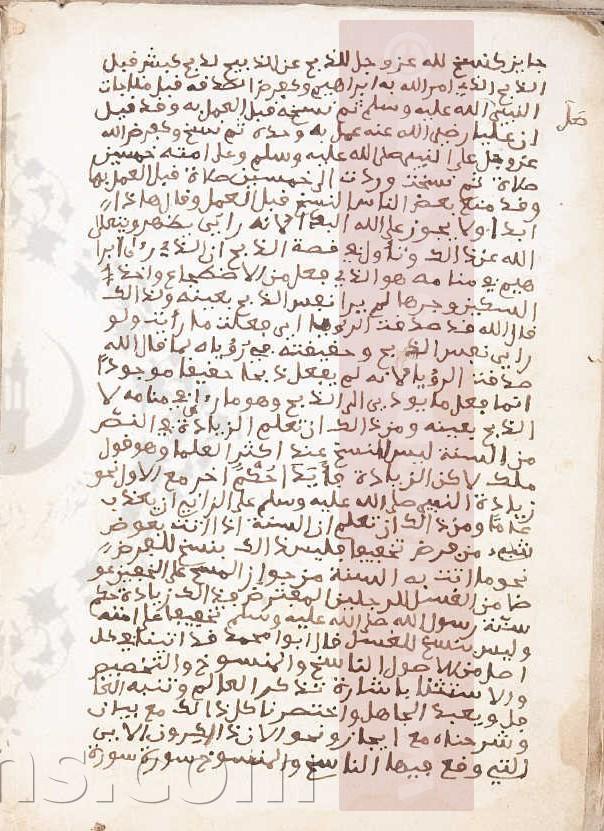 جايز كنسخ لله عز وجل للذبح عن الذبيح لذبح كبش قبل
الذبح الذي امر الله به ابراهيم وكفرض الصدقة قبل مناجات
النبي صلى الله عليه وسلم ثم نسخه قبل العمل به وقد قيل
ان عليا رضي الله عنه عمل به وحده ثم نسخ وكفرض الله
عز وجل على النبي صلى الله عليه وسلم وعلى امته خمسين
صلاة ثم نسخت وردت الى خمس صلاة قبل العمل بها
وقد منع بعض الناس النسخ قبل العمل وقال هذا
ابدا ولا يجوز على الله البدا لانه راي يظهر ويتعلى
الله عن ذلك وتاول في قصة الذبح ان الذي رءى ابرا
هيم في منامه هو الذي فعل من الاضطجاع واخذ
السكين وجرها لم ير نفس الذبح بعينه ولذلك
قال الله قد صدقت الرؤيا اي فعلت ما رأيت ولو
راى نفس الذبح وحقيقته في رؤياه لما قال الله
صدقت الرؤيا لانه لم يفعل ذبحا حقيقا موجودا
انما فعل ما يودي الى الذبح وهو ما رءى في منامه لا
الذبح بعينه ومن ذلك ان تعلم الزيادة في النص
من السنة ليس للنسخ عند اكثر العلما وهو قول
ملك لاكن الزيادة فايدة حكم اخر مع الاول نحو
زيادة النبي صلى الله عليه وسلم على الزاني ان يغرب
عاما ومن ذلك ان تعلم ان السنة اذا اتت بعوض
شيء من فرض تخفيفا فليس ذلك بنسخ للفرض
نحو ما اتت به السنة من جواز المسح على الخفين عو
ضا من الغسل للرجلين المفترض فذلك زيادة حكم
سنه رسول الله صلى الله عليه وسلم تخفيفا على امته
وليس بنسخ للغسل قال ابوا محمد قد اتينا بجمل
اصل من الاصول الناسخ والمنسوخ والتخصيص
والاستثنا باشارة تذكر العالم وتنبه الغا
فل وتفيد الجاهل واختصرنا كل ذلك مع بيان
وشرحناه مع ايجاز ونحو الان ذاكرون الاي
التي وقع فيها الناسخ والمنسوخ سورة سورة
ns.com